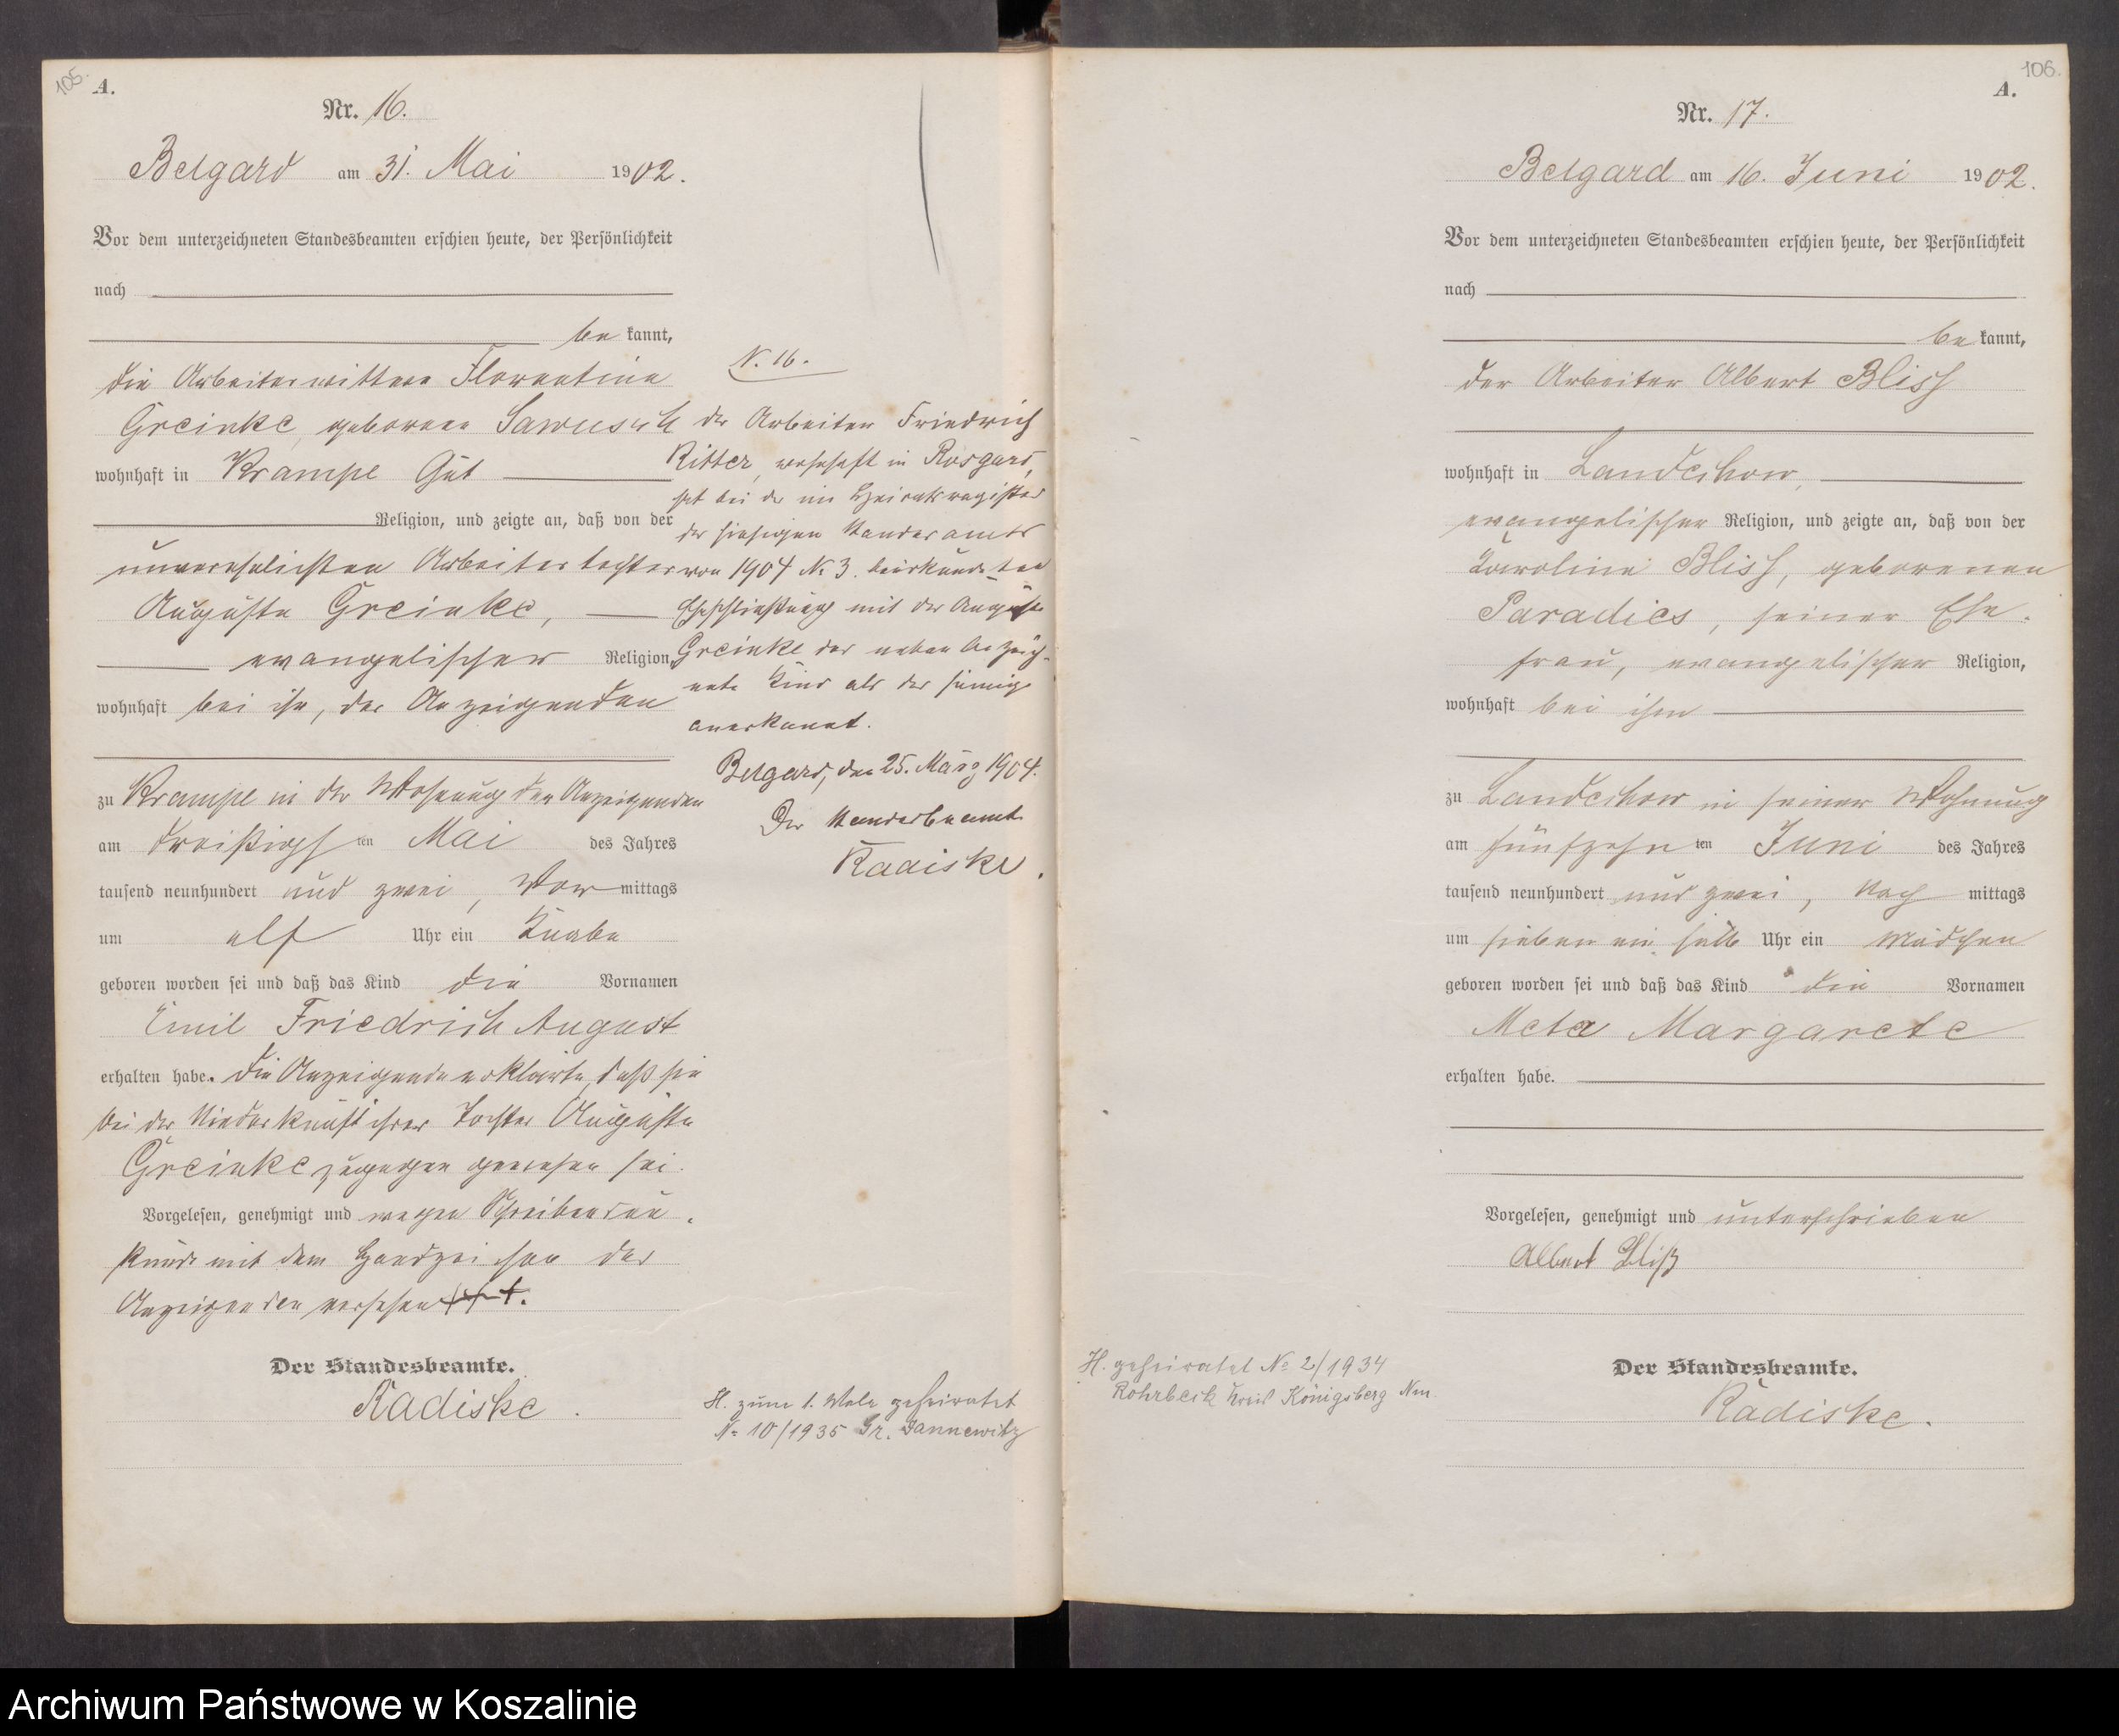 105.
A.
Nr. 16.
Belgard am 31. Mai 1902.
Vor dem unterzeichneten Standesbeamten erschien heute, der Persönlichkeit
nach
be kannt,
die Arbeiterwittwe Florentine
Greinke, geborene
wohnhaft in Krampe Gut
Religion, und zeigte an, daß von der
unverehelichten Arbeitertochter
Auguste Greinke,
evangelischer Religion,
wohnhaft bei ihr, der Anzeigenden
zu Krampe in der Wohnung der Anzeigenden
am dreißigsten Mai des Jahres
tausend neunhundert und zwei, Vor mittags
um elf Uhr ein Knabe
geboren worden sei und daß das Kind die Vornamen
Emil Friedrich August
erhalten habe. Die Anzeigende erklärte, daß sie
bei der Niederkunft ihrer Tochter Auguste
Greinke zugegen gewesen sei.
Vorgelesen, genehmigt und wegen Schreibensun-
kunde mit dem Handzeichen der
Anzeigenden versehen +++.
Der Standesbeamte.
Radiske.
N. 16.
der Arbeiter Friedrich
Ritter, wohnhaft in Rosgars,
hat bei der im Heiratsregister
des hiesigen Standesamts
von 1904 No 3. beurkundeten
Eheschließung mit der Auguste
Greinke das neben bezeich-
nete Kind als das seinige
anerkannt.
Belgard, den 25. März 1904.
Der Standesbeamte
Radiske.
H. zum 1. Male geheiratet
No 10/1935 Gr. Jannewitz
106.
A.
Nr. 17.
Belgard am 16. Juni 1902.
Vor dem unterzeichneten Standesbeamten erschien heute, der Persönlichkeit
nach
be kannt,
der Arbeiter Albert Bliss
wohnhaft in Landechow,
evangelischer Religion, und zeigte an, daß von der
Karoline Bliss, geborenen
Paradies, seiner Ehe-
frau, evangelischer Religion,
wohnhaft bei ihm
zu Landechow in seiner Wohnung
am fünfzehnten Juni des Jahres
tausend neunhundert und zwei, Nach mittags
um sieben ein halb Uhr ein Mädchen
geboren worden sei und daß das Kind die Vornamen
Meta Margarete
erhalten habe.
Vorgelesen, genehmigt und unterschrieben
Albert Bliß
Der Standesbeamte.
Radiske.
H. geheiratet No 2/1934
Rohrbeck Kreis Königsberg Nm.
Archiwum Państwowe w Koszalinie